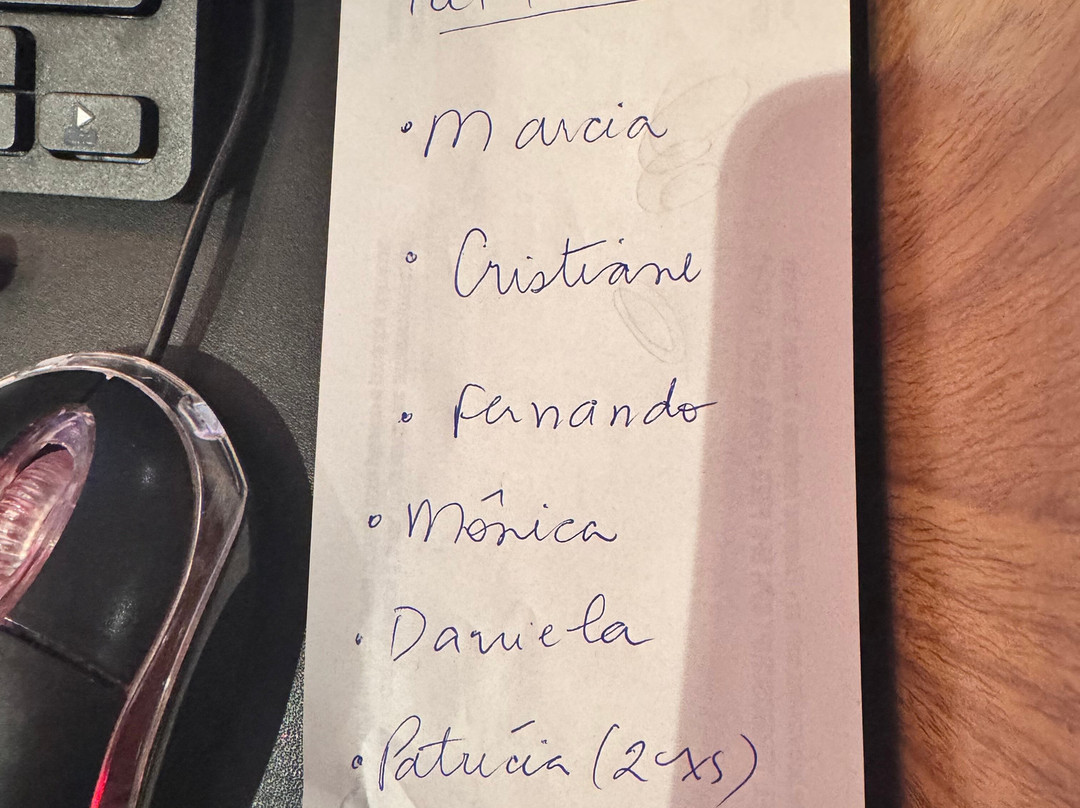 • Marcia
• Cristiane
• Fernando
• Mônica
• Daniela
• Patrícia (2 xs)